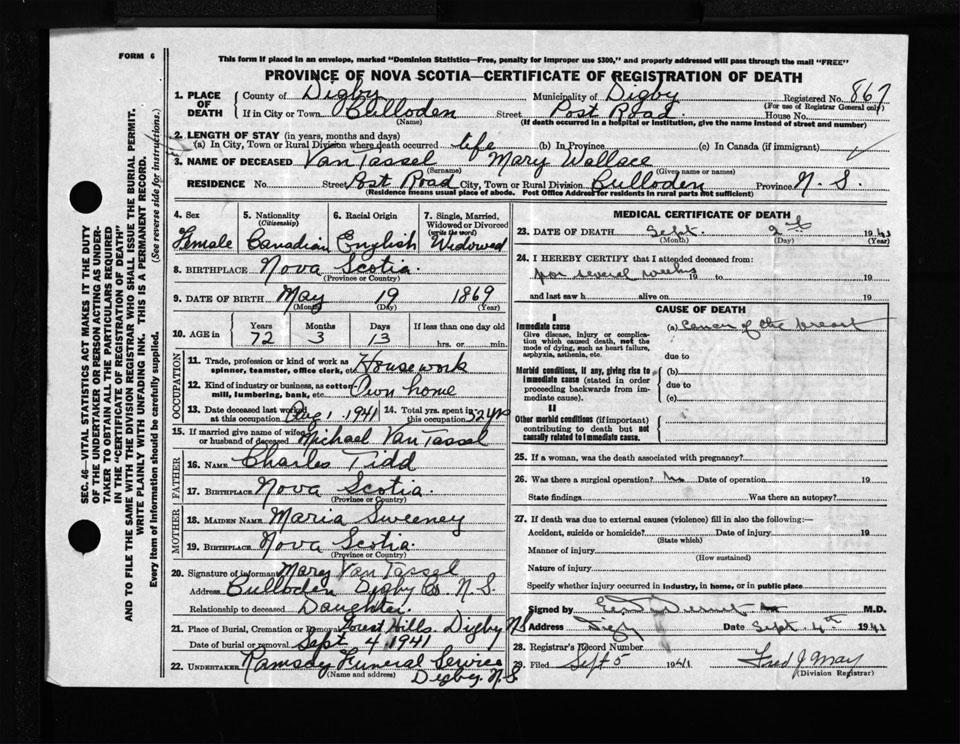 FORM 6
This form if placed in an envelope, marked "Dominion Statistics—Free, penalty for improper use $300," and properly addressed will pass through the mail "FREE"
PROVINCE OF NOVA SCOTIA—CERTIFICATE OF REGISTRATION OF DEATH
1. PLACE OF DEATH
County of Digby Municipality of Digby Registered No. 867
(For use of Registrar General only)
If in City or Town Culloden Street Post Road House No.
(Name) (If death occurred in a hospital or institution, give the name instead of street and number)
2. LENGTH OF STAY (in years, months and days)
(a) In City, Town or Rural Division where death occurred life (b) In Province (c) In Canada (if immigrant)
3. NAME OF DECEASED Van Tassel Mary Wallace
(Surname) (Given name or names)
RESIDENCE No. Street Post Road City, Town or Rural Division Culloden Province N. S.
(Residence means usual place of abode. Post Office Address for residents in rural parts not sufficient)
4. Sex
Female
5. Nationality
(Citizenship)
Canadian
6. Racial Origin
English
7. Single, Married, Widowed or Divorced
(write the word)
Widowed
8. BIRTHPLACE Nova Scotia.
(Province or Country)
9. DATE OF BIRTH May 19 1869
(Month) (Day) (Year)
10. AGE in
Years Months Days If less than one day old
72 3 13 hrs. or min.
OCCUPATION
11. Trade, profession or kind of work as
spinner, teamster, office clerk, etc. Housework
12. Kind of industry or business, as cotton-
mill, lumbering, bank, etc. Own home
13. Date deceased last worked
at this occupation Aug 1, 1941
14. Total yrs. spent in
this occupation 52 yrs
15. If married give name of wife
or husband of deceased Michael Van Tassel
FATHER
16. NAME Charles Tidd
17. BIRTHPLACE Nova Scotia.
(Province or Country)
MOTHER
18. MAIDEN NAME Maria Sweeney
19. BIRTHPLACE Nova Scotia.
(Province or Country)
20. Signature of informant Mary Van Tassel
Address Culloden Digby Co. N. S.
Relationship to deceased Daughter.
21. Place of Burial, Cremation or Removal Forest Hills. Digby NS
Date of burial or removal Sept 4 1941
22. UNDERTAKER Ramsay Funeral Service
(Name and address) Digby. N. S.
MEDICAL CERTIFICATE OF DEATH
23. DATE OF DEATH Sept. 2nd 1941
(Month) (Day) (Year)
24. I HEREBY CERTIFY that I attended deceased from:
for several weeks 19 to 19
and last saw h alive on 19
CAUSE OF DEATH
I
Immediate cause
Give disease, injury or complication which caused death, not the mode of dying, such as heart failure, asphyxia, asthenia, etc.
(a) Cancer of the breast
due to
Morbid conditions, if any, giving rise to immediate cause (stated in order proceeding backwards from immediate cause).
(b)
due to
(c)
II
Other morbid conditions (if important) contributing to death but not causally related to immediate cause.
25. If a woman, was the death associated with pregnancy?
26. Was there a surgical operation? no Date of operation 19
State findings Was there an autopsy?
27. If death was due to external causes (violence) fill in also the following:—
Accident, suicide or homicide? Date of injury 19
(State which)
Manner of injury
(How sustained)
Nature of injury
Specify whether injury occurred in industry, in home, or in public place
Signed by M.D.
Address Digby Date Sept. 4th 1941
28. Registrar's Record Number
29. Filed Sept 5 1941 Fred J. May
(Division Registrar)
SEC. 46—VITAL STATISTICS ACT MAKES IT THE DUTY
OF THE UNDERTAKER OR PERSON ACTING AS UNDER-
TAKER TO OBTAIN ALL THE PARTICULARS REQUIRED
IN THE "CERTIFICATE OF REGISTRATION OF DEATH"
AND TO FILE THE SAME WITH THE DIVISION REGISTRAR WHO SHALL ISSUE THE BURIAL PERMIT.
WRITE PLAINLY WITH UNFADING INK. THIS IS A PERMANENT RECORD.
Every item of information should be carefully supplied. (See reverse side for instructions.)